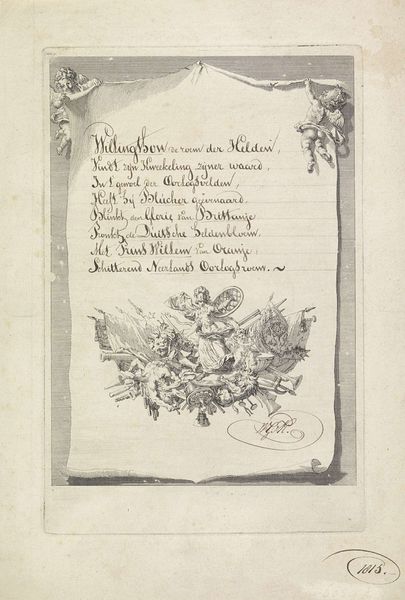 Wellingthon de roem der Helden,
Vindt zyn kweekeling zyner waard,
In 't gewoel der Oorlogsvelden,
Heeft hy Blücher geëvenaard.
Blinkt den Glorie van Brittanje
Pronkt de Duitsche heldenbloem,
Met Prins Willem van Oranje,
Schitterend Neerlands Oorlogsroem. ~
1815.